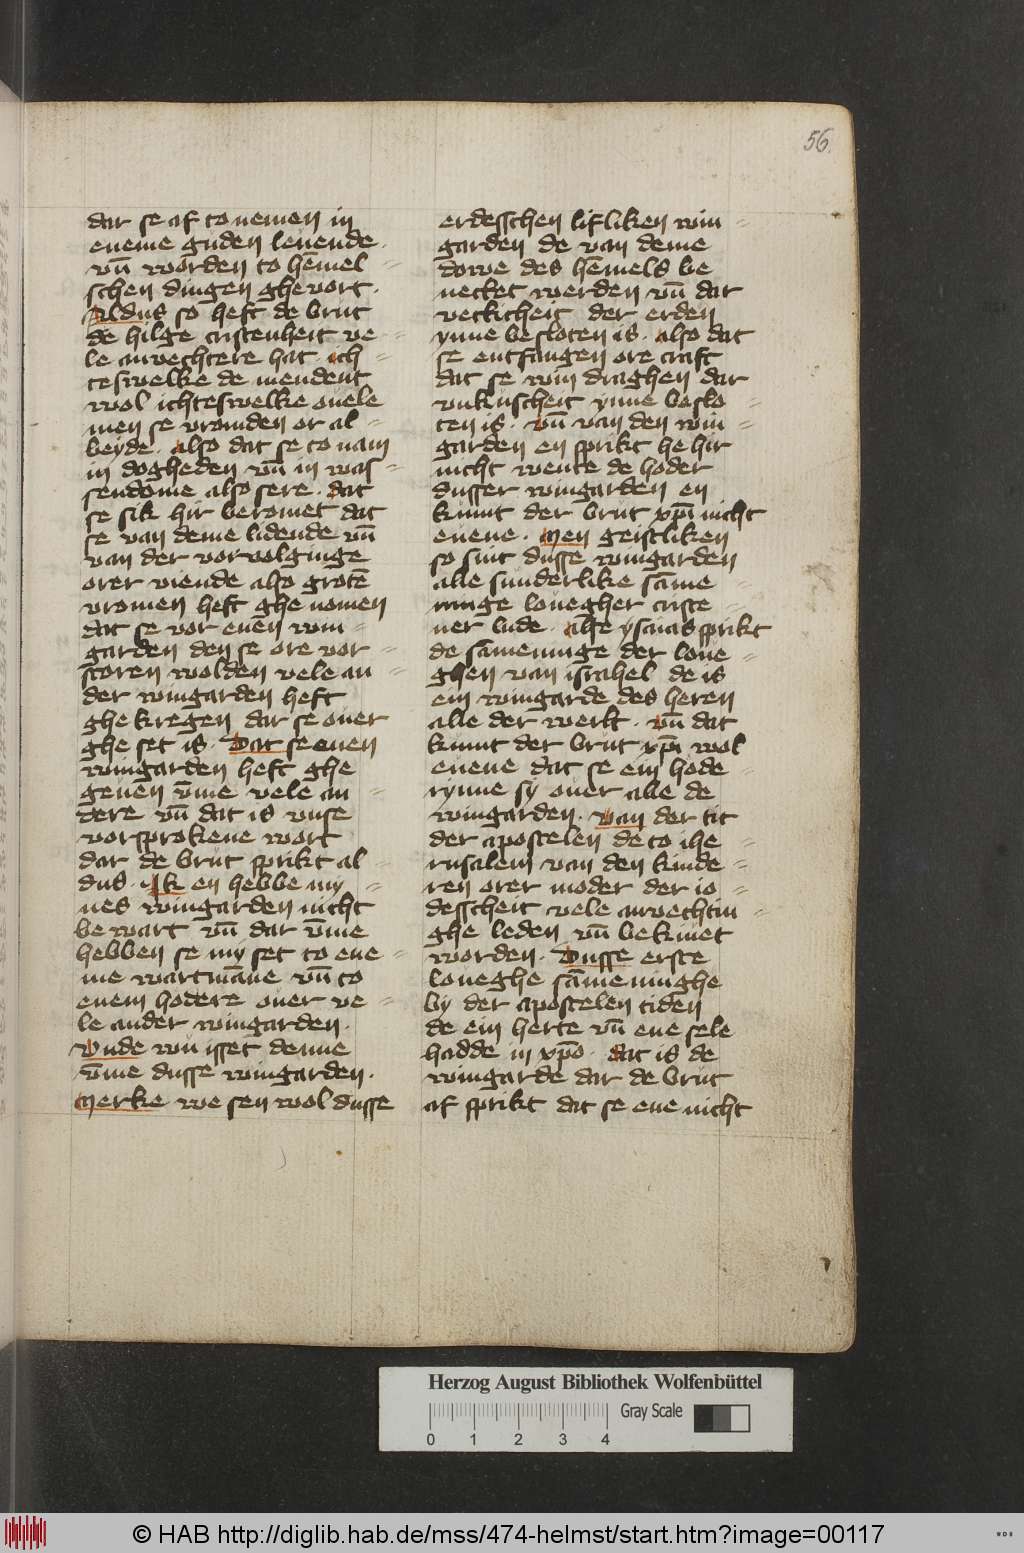 56.
dar se af to nemen in
eneme guden leuende.
vn̄ worden to hēmel-
schen dingen ghevort.
Aldus so heft de brut
de hilge cristenheit ve-
le anvechtere hat. ich-
teswelke de mendent
wol ichteswelke ouele
men se vromden or al-
beyde. also dat se to nam
in dogheden vn̄ in was-
sendome also sere. dat
se sik hir beromet dat
se van deme lidende vn̄
van der vorvolginge
orer viende also grotē
vromen heft ghenomen
dat se vor enen win-
garden den se ore vor-
storen wolden vele an-
der wingarden heft
ghekregen dar se ouer
ghe set is. Dat se enen
wingarden heft ghe
geuen v̄me vele an-
dere vn̄ dat is vnse
vorsprokene wort
dar de brut sprikt al-
dus. Ik en hebbe my-
nes wingarden nicht
bewart vn̄ dar v̄me
hebben se my set to ene-
me wartmāne vn̄ to
enem hodere ouer ve-
le ander wingarden.
Vnde wu isset denne
v̄me dusse wingarden.
Merke we sen wol dusse
erdesschen lifliken win-
garden de van deme
dowe des hēmels be
netket werden vn̄ dar
vetkicheit der erden
ynne besloten is. also dat
se entfangen ore craft
dat se win draghen dar
vnkuscheit ynne beslo-
ten is. vn̄ van den win-
garden en sprikt he hir
nicht wente de hoder
dusser wingarden en
kumt der brut xp̄i nicht
euene. Men geistliken
so sint dusse wingarden
alle sunderlike sāme-
ninge louegher criste-
ner lude. alse ysaias sprikt
de sāmeninge der loue-
ghen van israhel de is
ein wingarde des heren
alle der werlt. vn̄ dat
kumt der brut xp̄i wol
euene dat se ein hode-
rynne sy ouer alle de
wingarden. Van der tit
der apostelen de to ihe-
rusalem van den kinde-
ren orer moder der io-
desscheit vele anvechtin-
ghe leden vn̄ bekumet
worden. Dusse erste
loueghe sāmeninghe
by der apostelen tiden
de ein herte vn̄ ene sele
hadde in xp̄o. dat is de
wingarde dar de brut
af sprikt dat se ene nicht
Herzog August Bibliothek Wolfenbüttel
0 1 2 3 4
Gray Scale
© HAB http://diglib.hab.de/mss/474-helmst/start.htm?image=00117